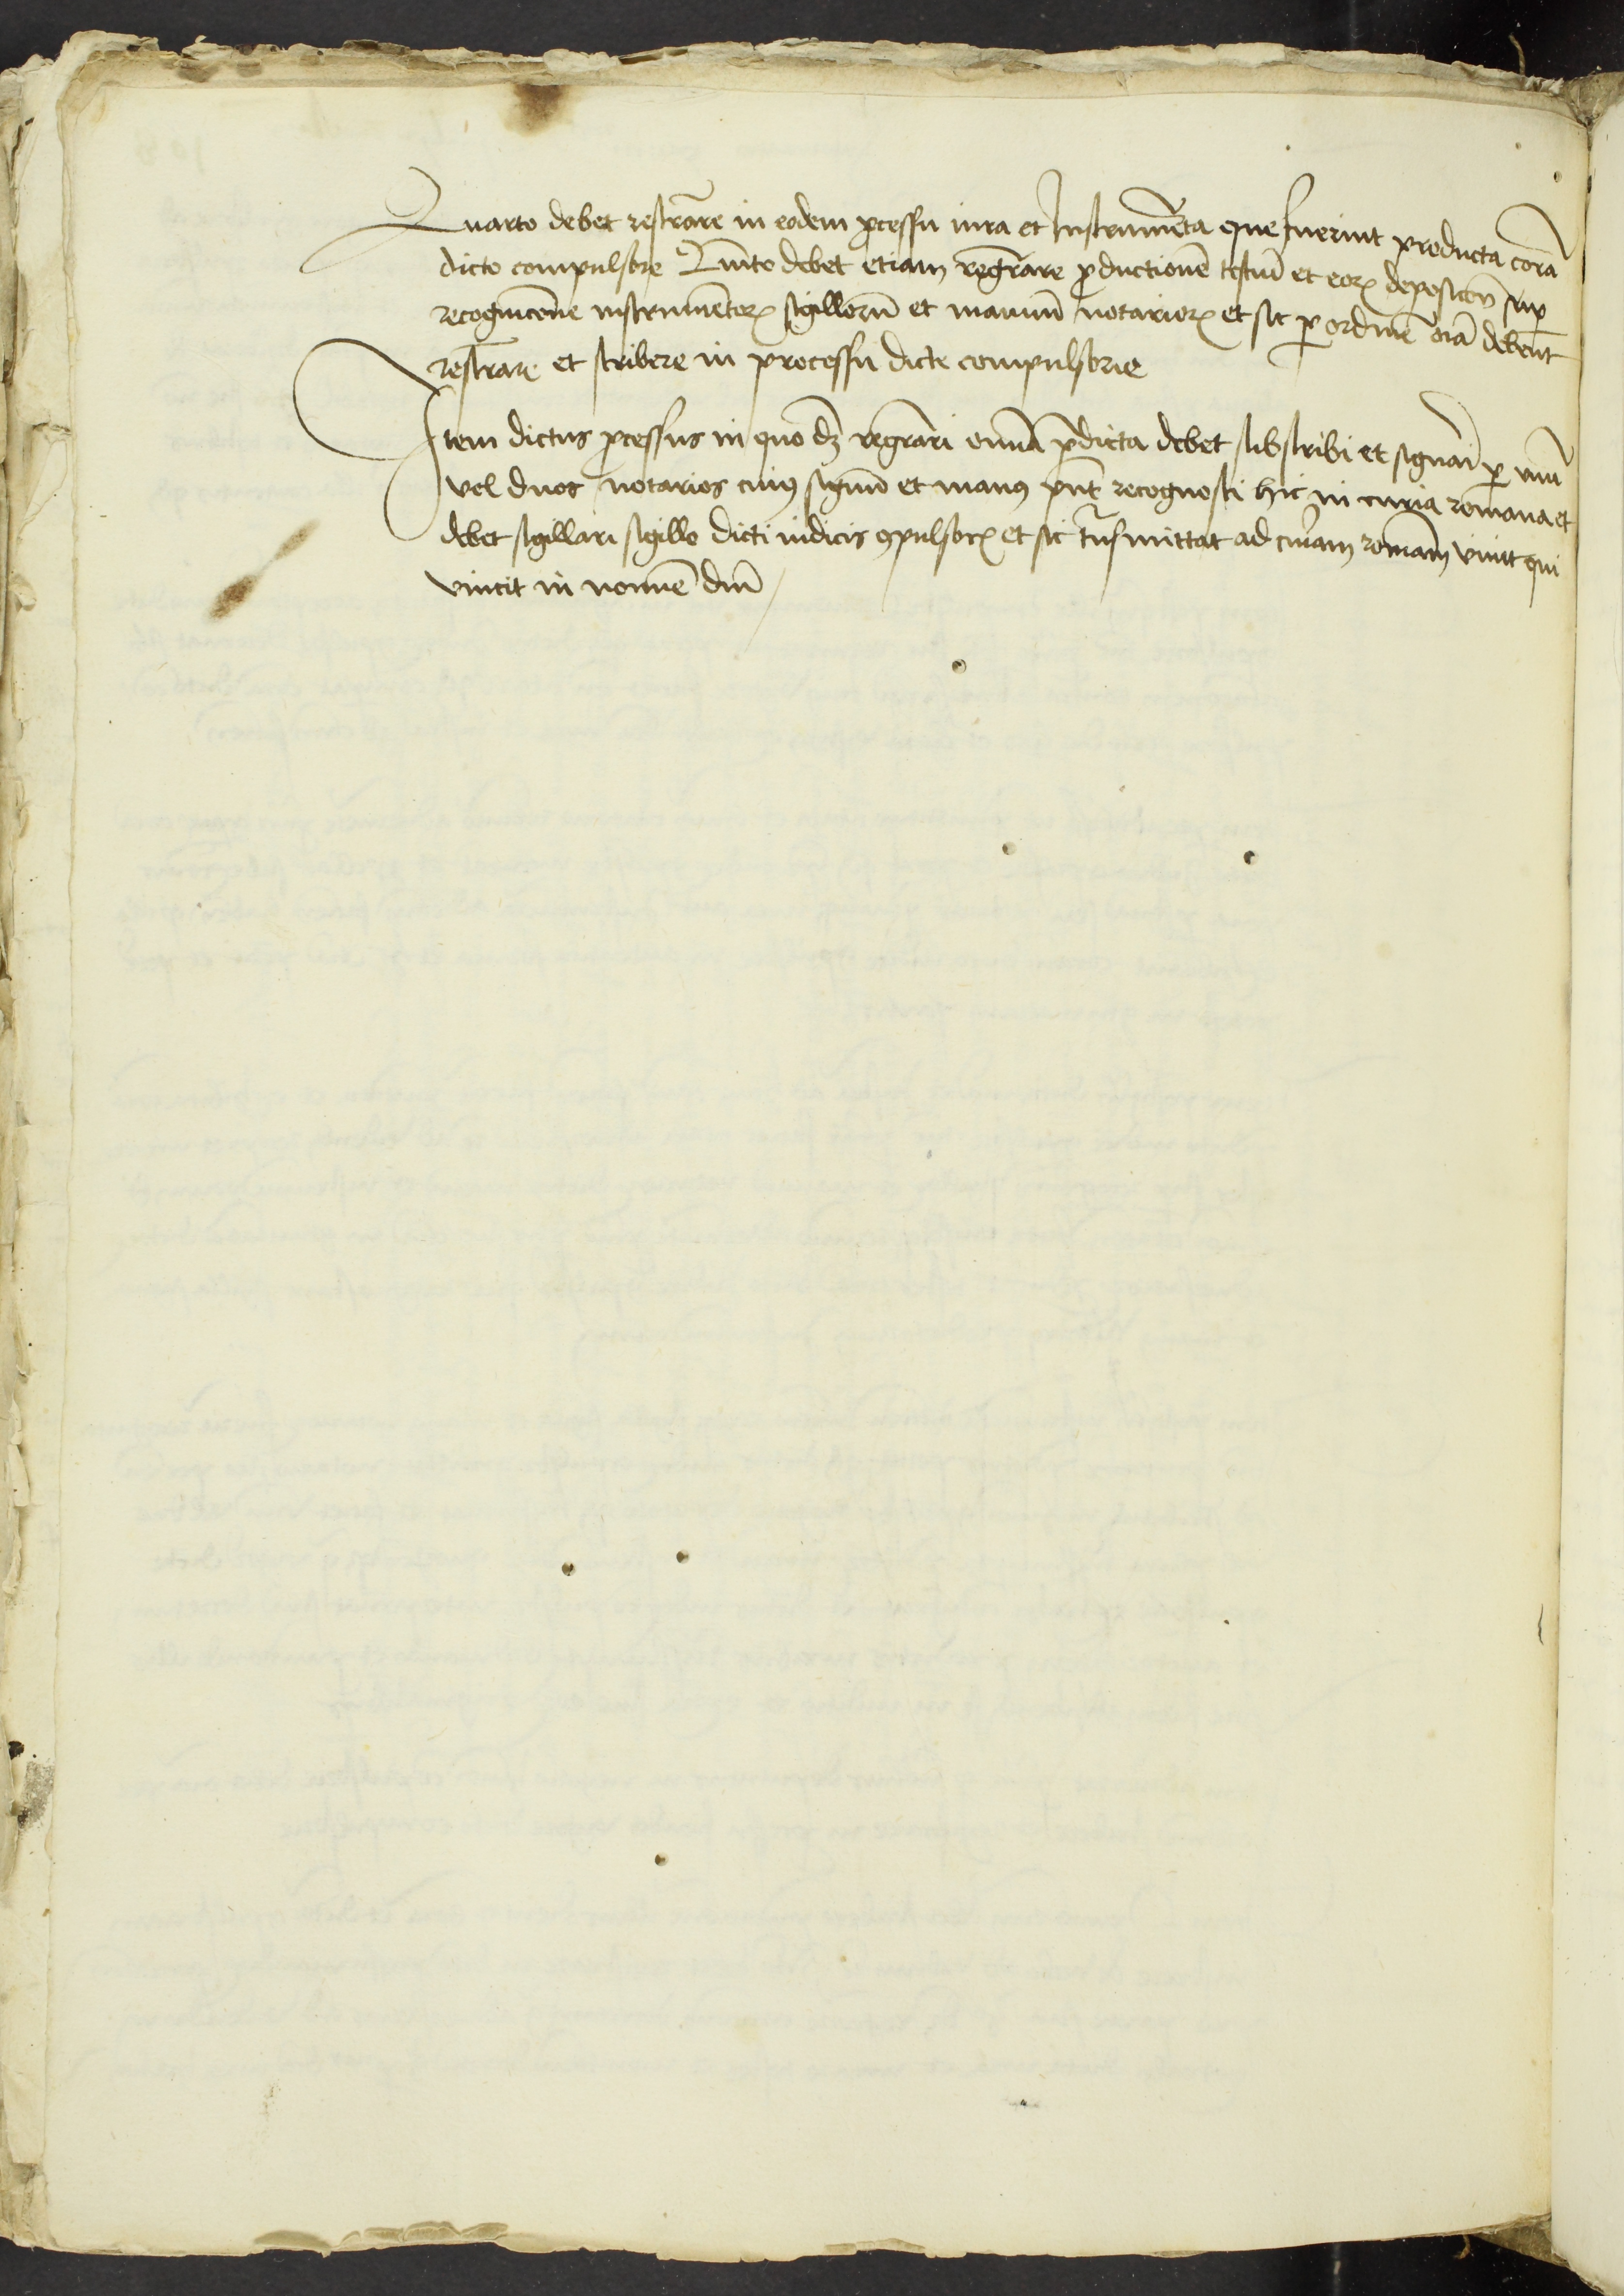 Quarto debet restrāre in eodem ꝓcessu iura et Instrumēta que fuerint producta corā
dicto compulsore Quīto debet etiam regr̄are ꝓductionē testiū et eoꝝ depositōn̄ suꝑ
recognicōne instrumētoꝝ sigillorū et manuū notarioꝝ et sic ꝑ ordinē oīa debent
restrare et scribere in processu dicte compulsorie
Item dictus ꝓcessus in quo dꝫ regr̄ari omīa p̄dicta debet subscribi et signari ꝑ unū
vel duos notarios cuiꝰ signū et manꝰ pn̄t recognosci hic in curia romana et
debet sigillari sigillo dicti iudicis ꝯpulsorꝭ et sic trāsmittat̄ ad curiam romam̄ vinit qui
vincit in nomīe dm̄